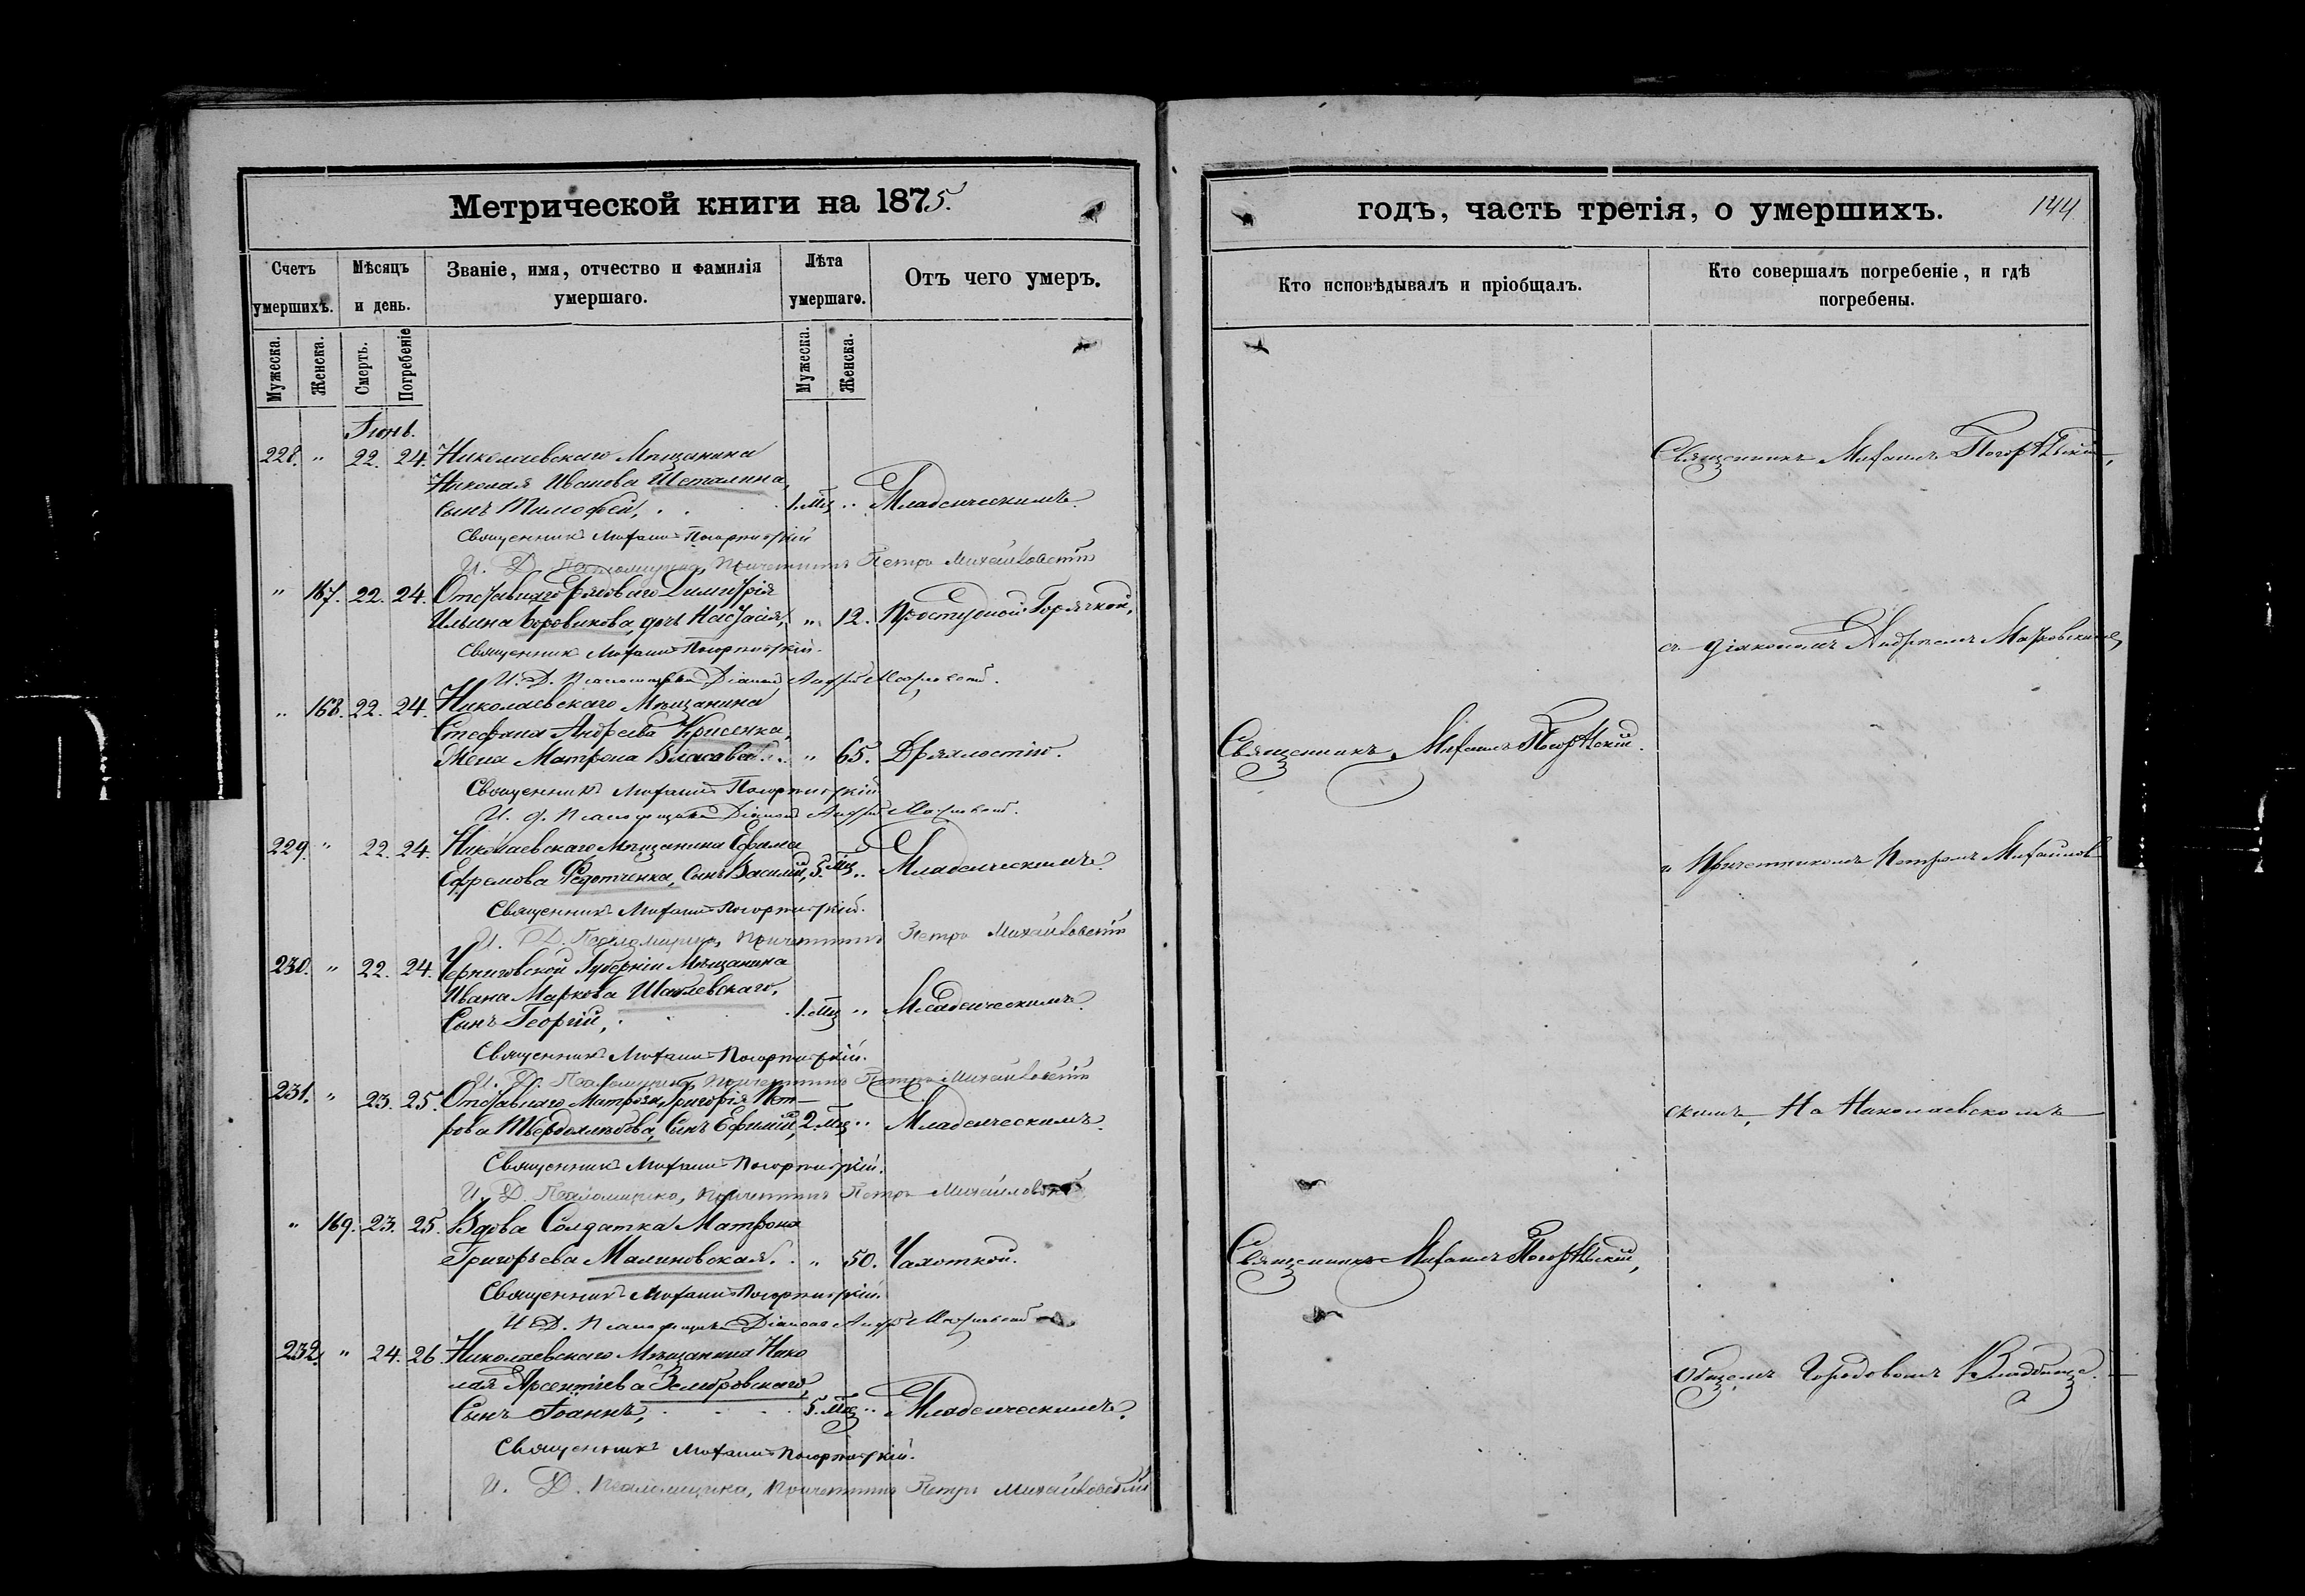 Метрической книги на 1875.
Счетъ умершихъ.
Мѣсяцъ и день.
Званіе, имя, отчество и фамилія умершаго.
Лѣта умершаго.
Отъ чего умеръ.
Мужеска.
Женска.
Смерть.
Погребеніе
Мужеска.
Женска.
Іюнь.
228. " 22. 24. Николаевскаго Мѣщанина
Николая Иванова
Сынъ Тимофей, 1. мц " Младенческимъ.
Священникъ Михаилъ
И. Д. Псаломщика, Причетникъ Петръ Михайловскій
" 167. 22. 24. Отставнаго Рядоваго Димитрія
Ильина Боровикова, дочь Настасія, " 12. Простудной Горячкой,
Священникъ Михаилъ
И. Д. Псаломщика Діаконъ Андрей
" 168. 22. 24. Николаевскаго Мѣщанина
Стефана Андреева Крисенка,
Жена Матрона Власова. " 65. Дряхлостію.
Священникъ Михаилъ
И. д. Псаломщика Діаконъ Андрей
229. " 22. 24. Николаевскаго Мѣщанина Ефрема
Ефремова Федотченка, Сынъ Василій, 5. мц " Младенческимъ.
Священникъ Михаилъ
И. Д. Псаломщика, Причетникъ Петръ Михайловскій
230. " 22. 24. Черниговской Губерніи Мѣщанина
Ивана Маркова
Сынъ Георгій, 1. мц " Младенческимъ.
Священникъ Михаилъ
И. Д. Псаломщика, Причетникъ Петръ Михайловскій
231. " 23. 25. Отставнаго Матроза Григорія Пет-
рова Твердохлѣбова, Сынъ Ефимій, 2. мц " Младенческимъ.
Священникъ Михаилъ
И. Д. Псаломщика, Причетникъ Петръ Михайловскій
" 169. 23. 25. Вдова Солдатка Матрона
Григорьева Малиновская. " 50. Чахоткой.
Священникъ Михаилъ
И. Д. Псаломщика Діаконъ Андрей
232. " 24. 26. Николаевскаго Мѣщанина Нико
лая Арсентіева
Сынъ Іоаннъ, 5. мц " Младенческимъ.
Священникъ Михаилъ
И. Д. Псаломщика, Причетникъ Петръ Михайловскій
годъ, часть третія, о умершихъ.
144.
Кто исповѣдывалъ и пріобщалъ.
Кто совершалъ погребеніе, и гдѣ погребены.
Священникъ Михаилъ
съ Діакономъ Андреемъ
Священникъ Михаилъ
и Причетникомъ Петромъ Михайлов
скимъ, На Николаевскомъ
Священникъ Михаилъ
Общемъ Городовомъ Кладбище.